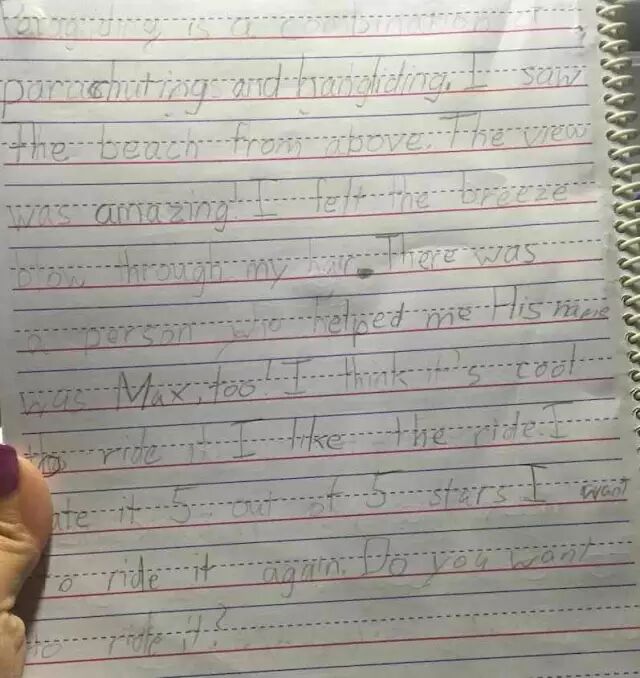 is a combination of
parachuting and hangliding. I saw
the beach from above. The view
was amazing! I felt the breeze
blow through my hair. There was
a person who helped me His name
was Max, too! I think it's cool
to ride it I like the ride. I
ate it 5 out of 5 stars I want
o ride it again. Do you want
to ride it?